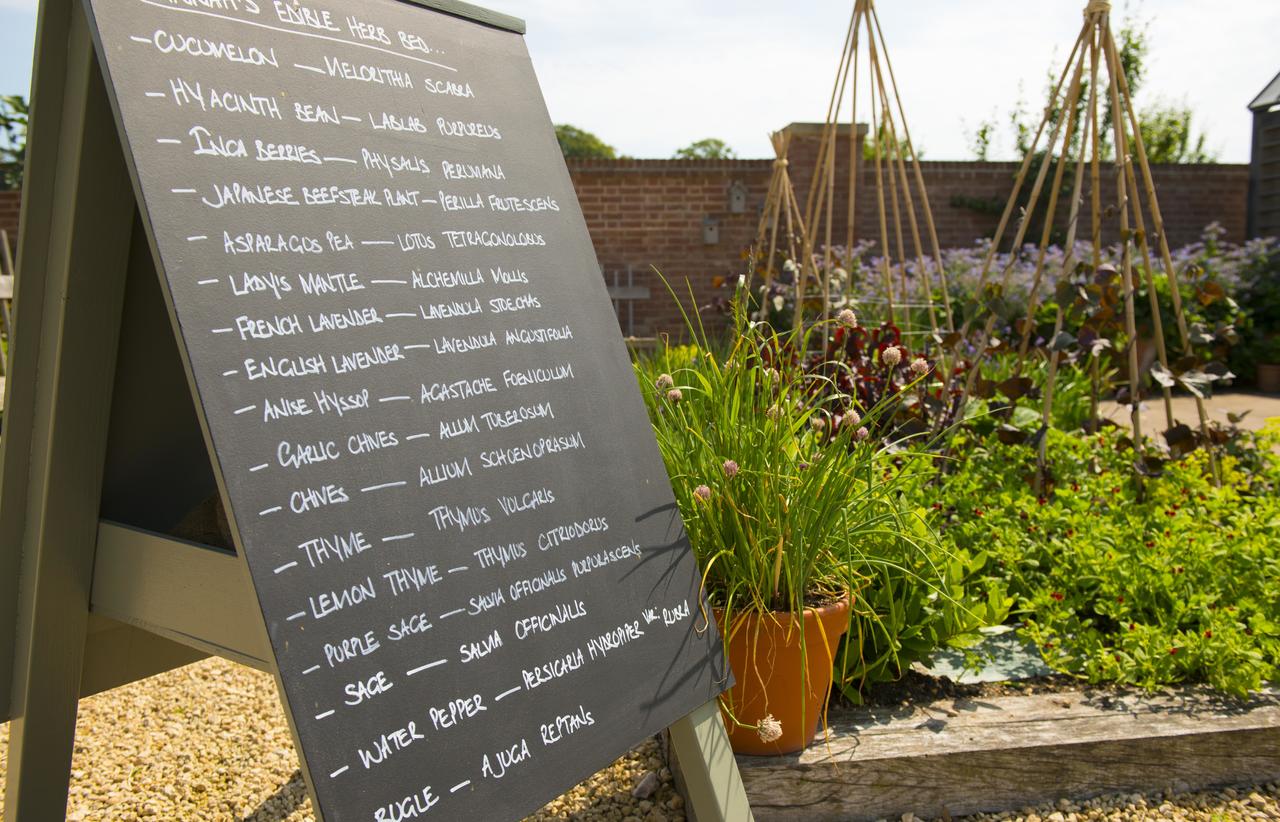 EDIBLE HERB BED...
- CUCUMELON - MELORTHIA SCABRA
- HYACINTH BEAN - LABLAB PURPUREUS
- INCA BERRIES - PHYSALIS PERUVIANA
- JAPANESE BEEFSTEAK PLANT - PERILLA FRUTESCENS
- ASPARAGUS PEA - LOTUS TETRAGONOLOBUS
- LADY'S MANTLE - ALCHEMILLA MOLLIS
- FRENCH LAVENDER - LAVENDULA STOECHAS
- ENGLISH LAVENDER - LAVENDULA ANGUSTIFOLIA
- ANISE HYSSOP - AGASTACHE FOENICULUM
- GARLIC CHIVES - ALLIUM TUBEROSUM
- CHIVES - ALLIUM SCHOENOPRASUM
- THYME - THYMUS VULGARIS
- LEMON THYME - THYMUS CITRIODORUS
- PURPLE SAGE - SALVIA OFFICINALIS PURPURASCENS
- SAGE - SALVIA OFFICINALIS
- WATER PEPPER - PERSICARIA HYDROPIPER VAR. RUBRA
BUGLE - AJUGA REPTANS